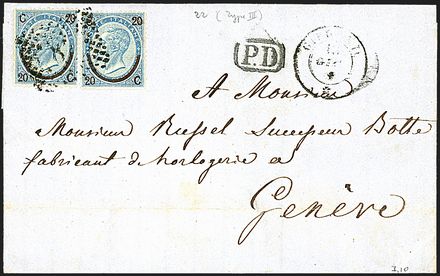 22 (Type III)
C 20 20
20 C 20 C
P.D
A Monsieur
Monsieur Russel Successeur Botte
fabricant d'horlogerie a
Genève
3,10